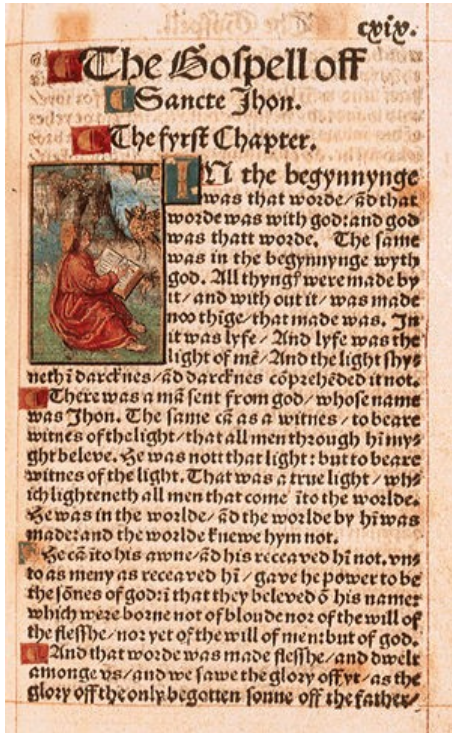 cxix.
The Gospell off
Sancte Jhon.
The fyrst Chapter.
IN the begynnynge
was that worde/ ãd that
worde was with god: and god
was thatt worde. The same
was in the begynnynge wyth
god. All thyngꝭ were made by
it/ and with out it/ was made
noo thige/ that made was. In
it was lyfe/ And lyfe was the
light of mẽ/ And the light shy⸗
neth ĩ darcknes/ ãd darcknes cõprehẽded it not.
There was a mã sent from god/ whose name
was Jhon. The same cã as a witnes/ to beare
witnes of the light/ that all men through hĩ my⸗
ght beleve. He was nott that light: but to beare
witnes of the light. That was a true light/ wh⸗
ich lighteneth all men that come ĩto the worlde.
He was in the worlde/ ãd the worlde by hĩ was
made: and the worlde knewe hym not.
He cã ĩto his awne/ ãd his receaved hĩ not. vn⸗
to as meny as receaved hĩ/ gave he power to be
the sõnes of god: ĩ that they beleved õ his name:
which were borne not of bloude nor of the will of
the flesshe/ nor yet of the will of men: but of god.
And that worde was made flesshe/ and dwelt
amonge vs/ and we sawe the glory off yt/ as the
glory off the only begotten sonne off the father/